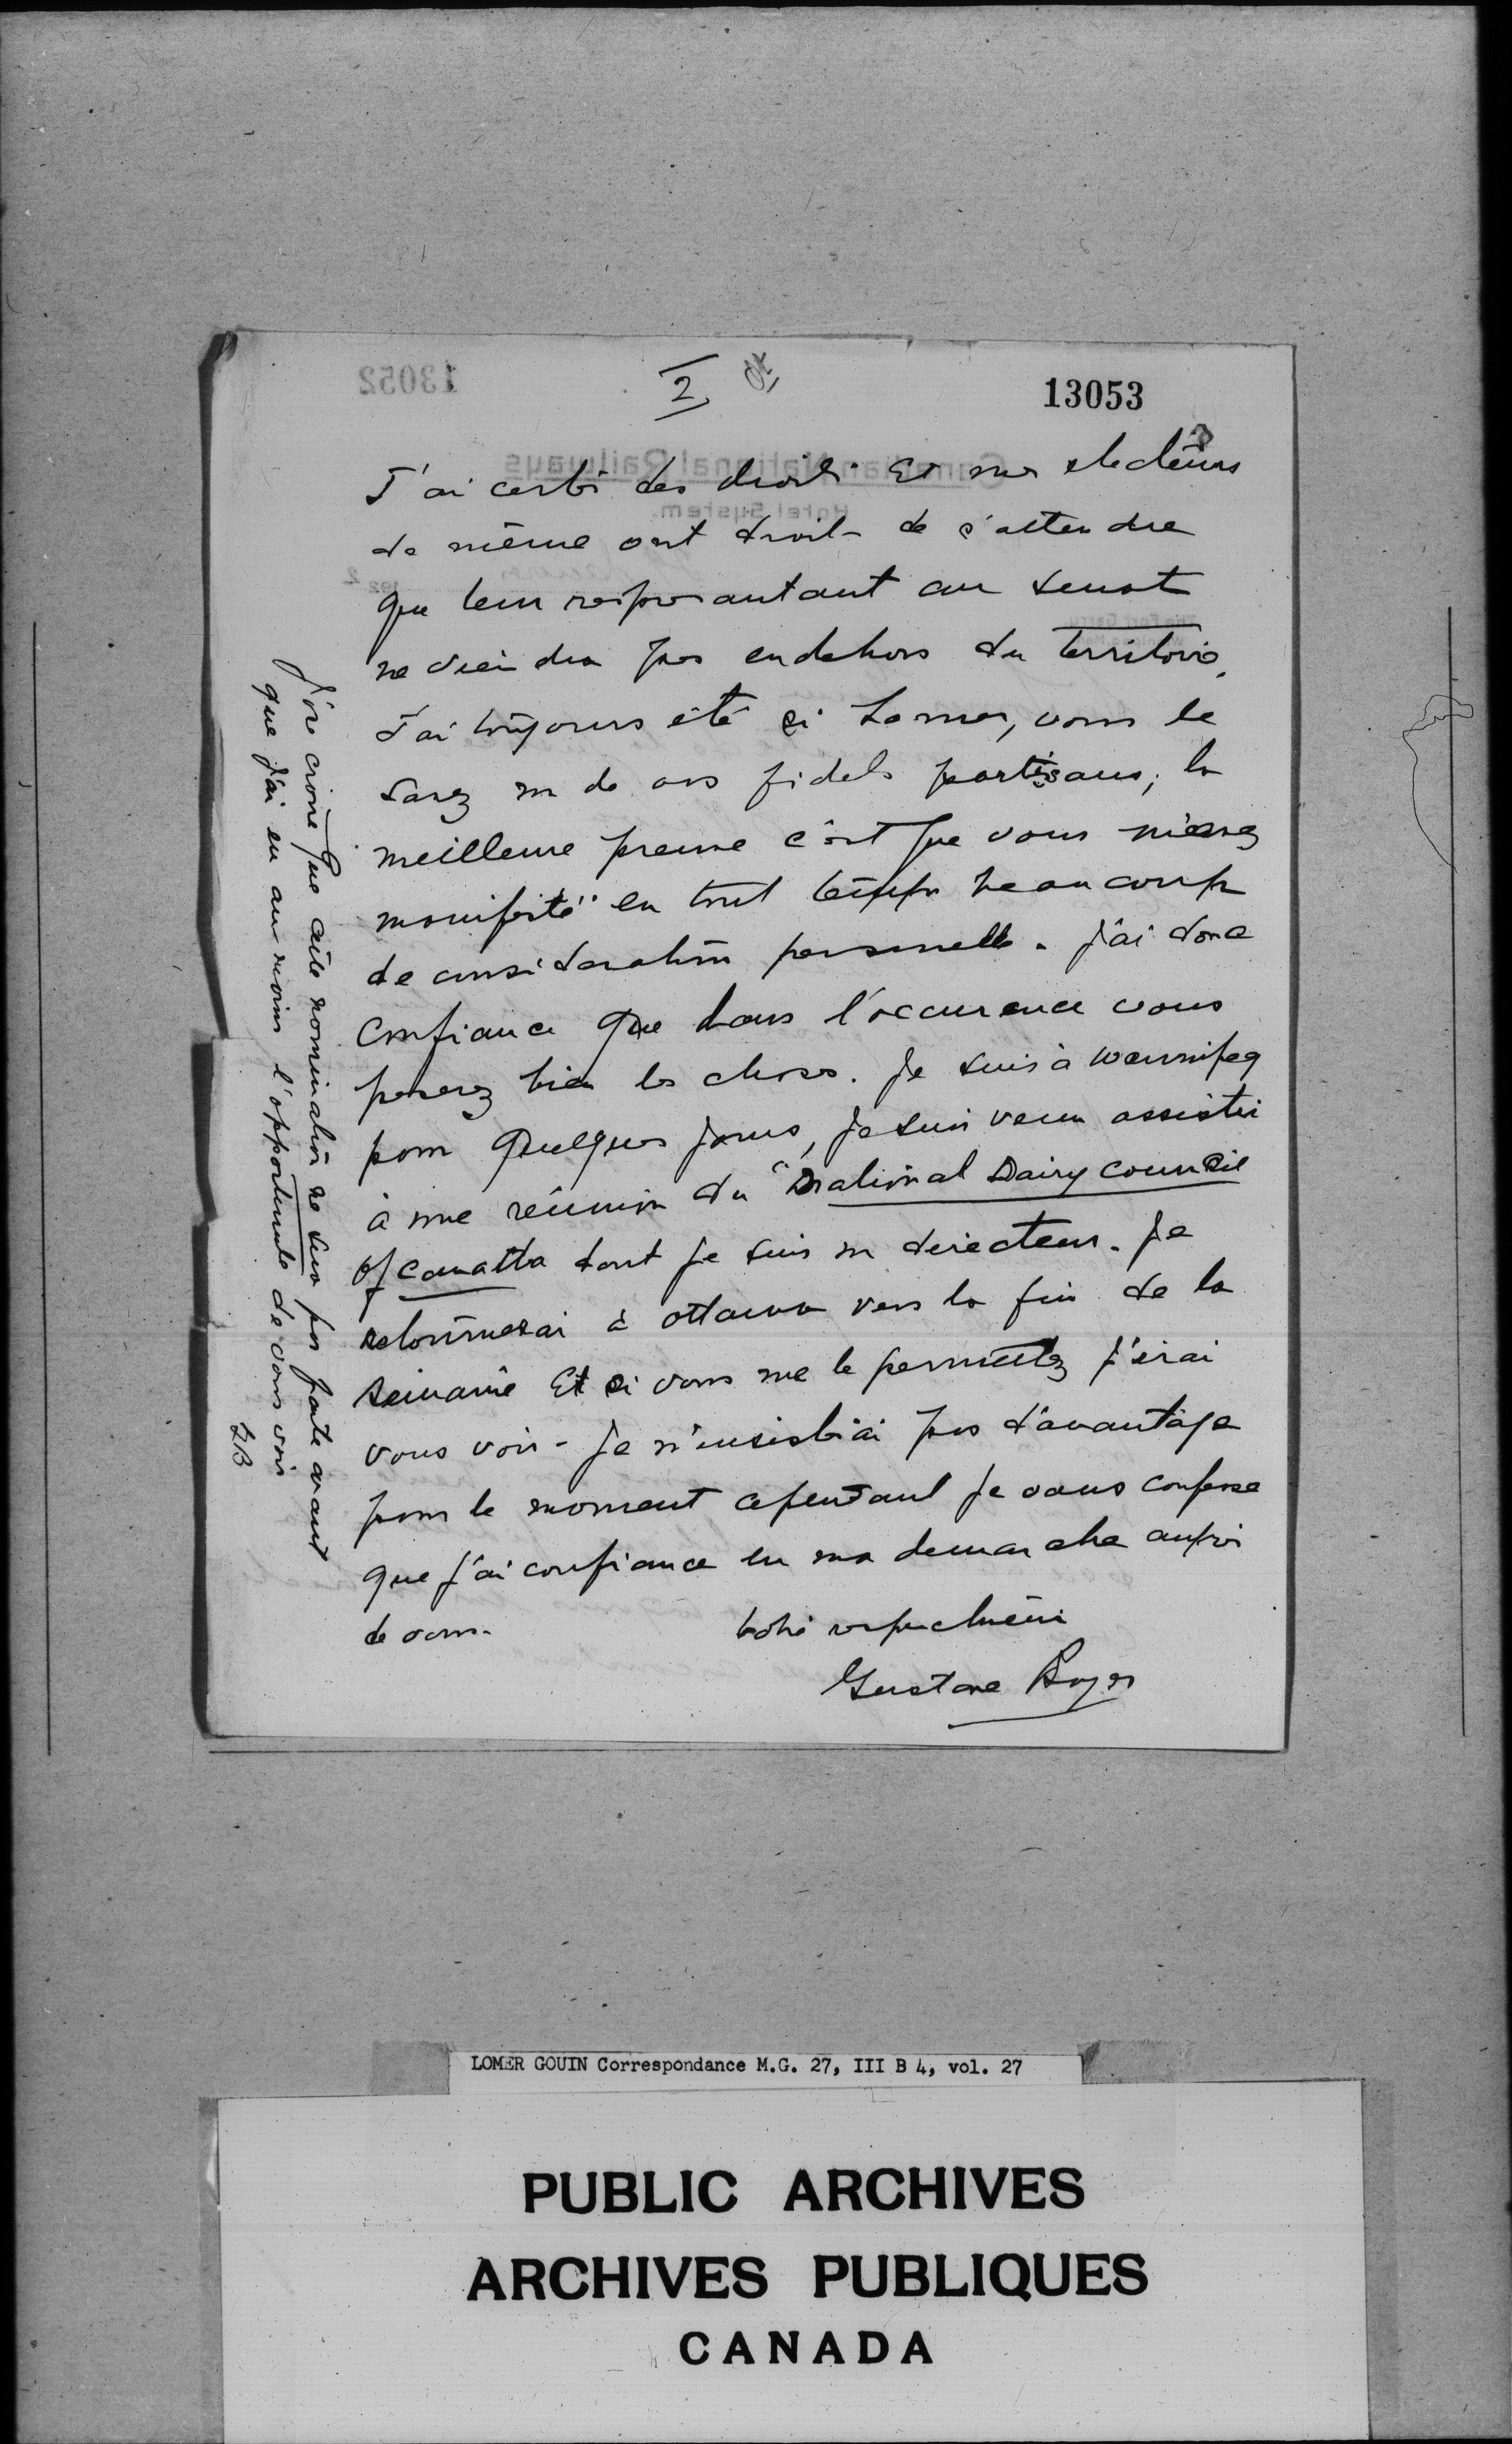 13052
2
13053
J'ai certes des droits et mes electeurs
de même ont droit de s'attendre
que leur representant au senat
ne viendra pas en dehors du territoire.
J'ai toujours été Si Lomer, vous le
savez un de vos fidels partisans; la
meilleure preuve c'est que vous m'avez
manifesté en tout temps beaucoup
de consideration personnelle. J'ai donc
confiance que dans l'occurence vous
peserez bien les choses. Je suis à Winnipeg
pour quelques jours, je suis venu assister
à une réunion du "National Dairy Council
of Canada dont je suis un directeur. Je
retournerai à Ottawa vers la fin de la
semaine et si vous me le permettez j'irai
vous voir - Je n'insisterai pas d'avantage
pour le moment cependant je vous confesse
que j'ai confiance en ma demarche auprès
de vous.
Votre respectueux
Gustave Boyer
J'ose croire que cette nomination ne sera pas faite avant
que j'ai eu au moins l'opportunité de vous voir
GB
LOMER GOUIN Correspondance M.G. 27, III B 4, vol. 27
PUBLIC ARCHIVES
ARCHIVES PUBLIQUES
CANADA